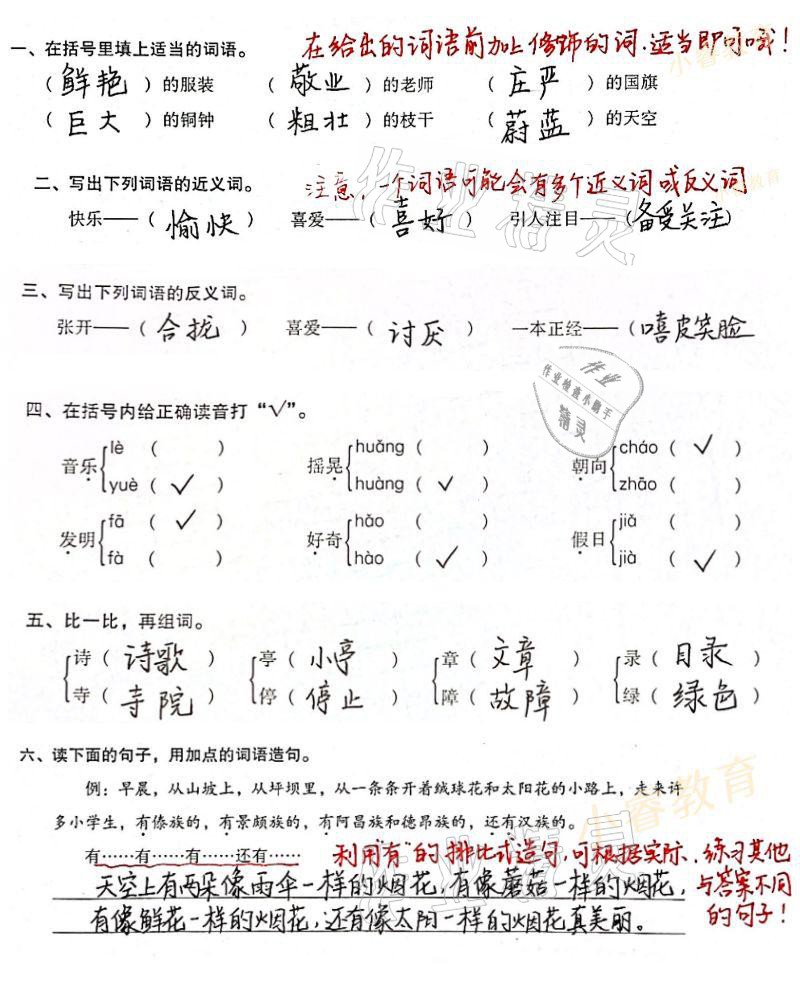 一、在括号里填上适当的词语。 在给出的词语前加上修饰的词.适当即可哦！
（鲜艳）的服装 （敬业）的老师 （庄严）的国旗
（巨大）的铜钟 （粗壮）的枝干 （蔚蓝）的天空
二、写出下列词语的近义词。 注意，一个词语可能会有多个近义词或反义词
快乐——（愉快） 喜爱——（喜好） 引人注目——（备受关注）
三、写出下列词语的反义词。
张开——（合拢） 喜爱——（讨厌） 一本正经——（嘻皮笑脸
四、在括号内给正确读音打“√”。
音乐 lè（ ） yuè（√） 摇晃 huǎng（ ） huàng（√） 朝向 cháo（√） zhāo（ ）
发明 fā（√） fà（ ） 好奇 hǎo（ ） hào（√） 假日 jiǎ（ ） jià（√）
五、比一比，再组词。
诗（诗歌） 亭（小亭） 章（文章） 录（目录）
寺（寺院） 停（停止） 障（故障） 绿（绿色）
六、读下面的句子，用加点的词语造句。
例：早晨，从山坡上，从坪坝里，从一条条开着绒球花和太阳花的小路上，走来许
多小学生，有傣族的，有景颇族的，有阿昌族和德昂族的，还有汉族的。
有……有……有……还有…… 利用有"的排比式造句,可根据实际、练习其他
与答案不同
的句子！
天空上有两朵像雨伞一样的烟花,有像蘑菇一样的烟花,
有像鲜花一样的烟花,还有像太阳一样的烟花真美丽。
作业精灵
小睿教育
小睿教育
作业
作业检查小助手
精灵
小睿教育
作业精灵